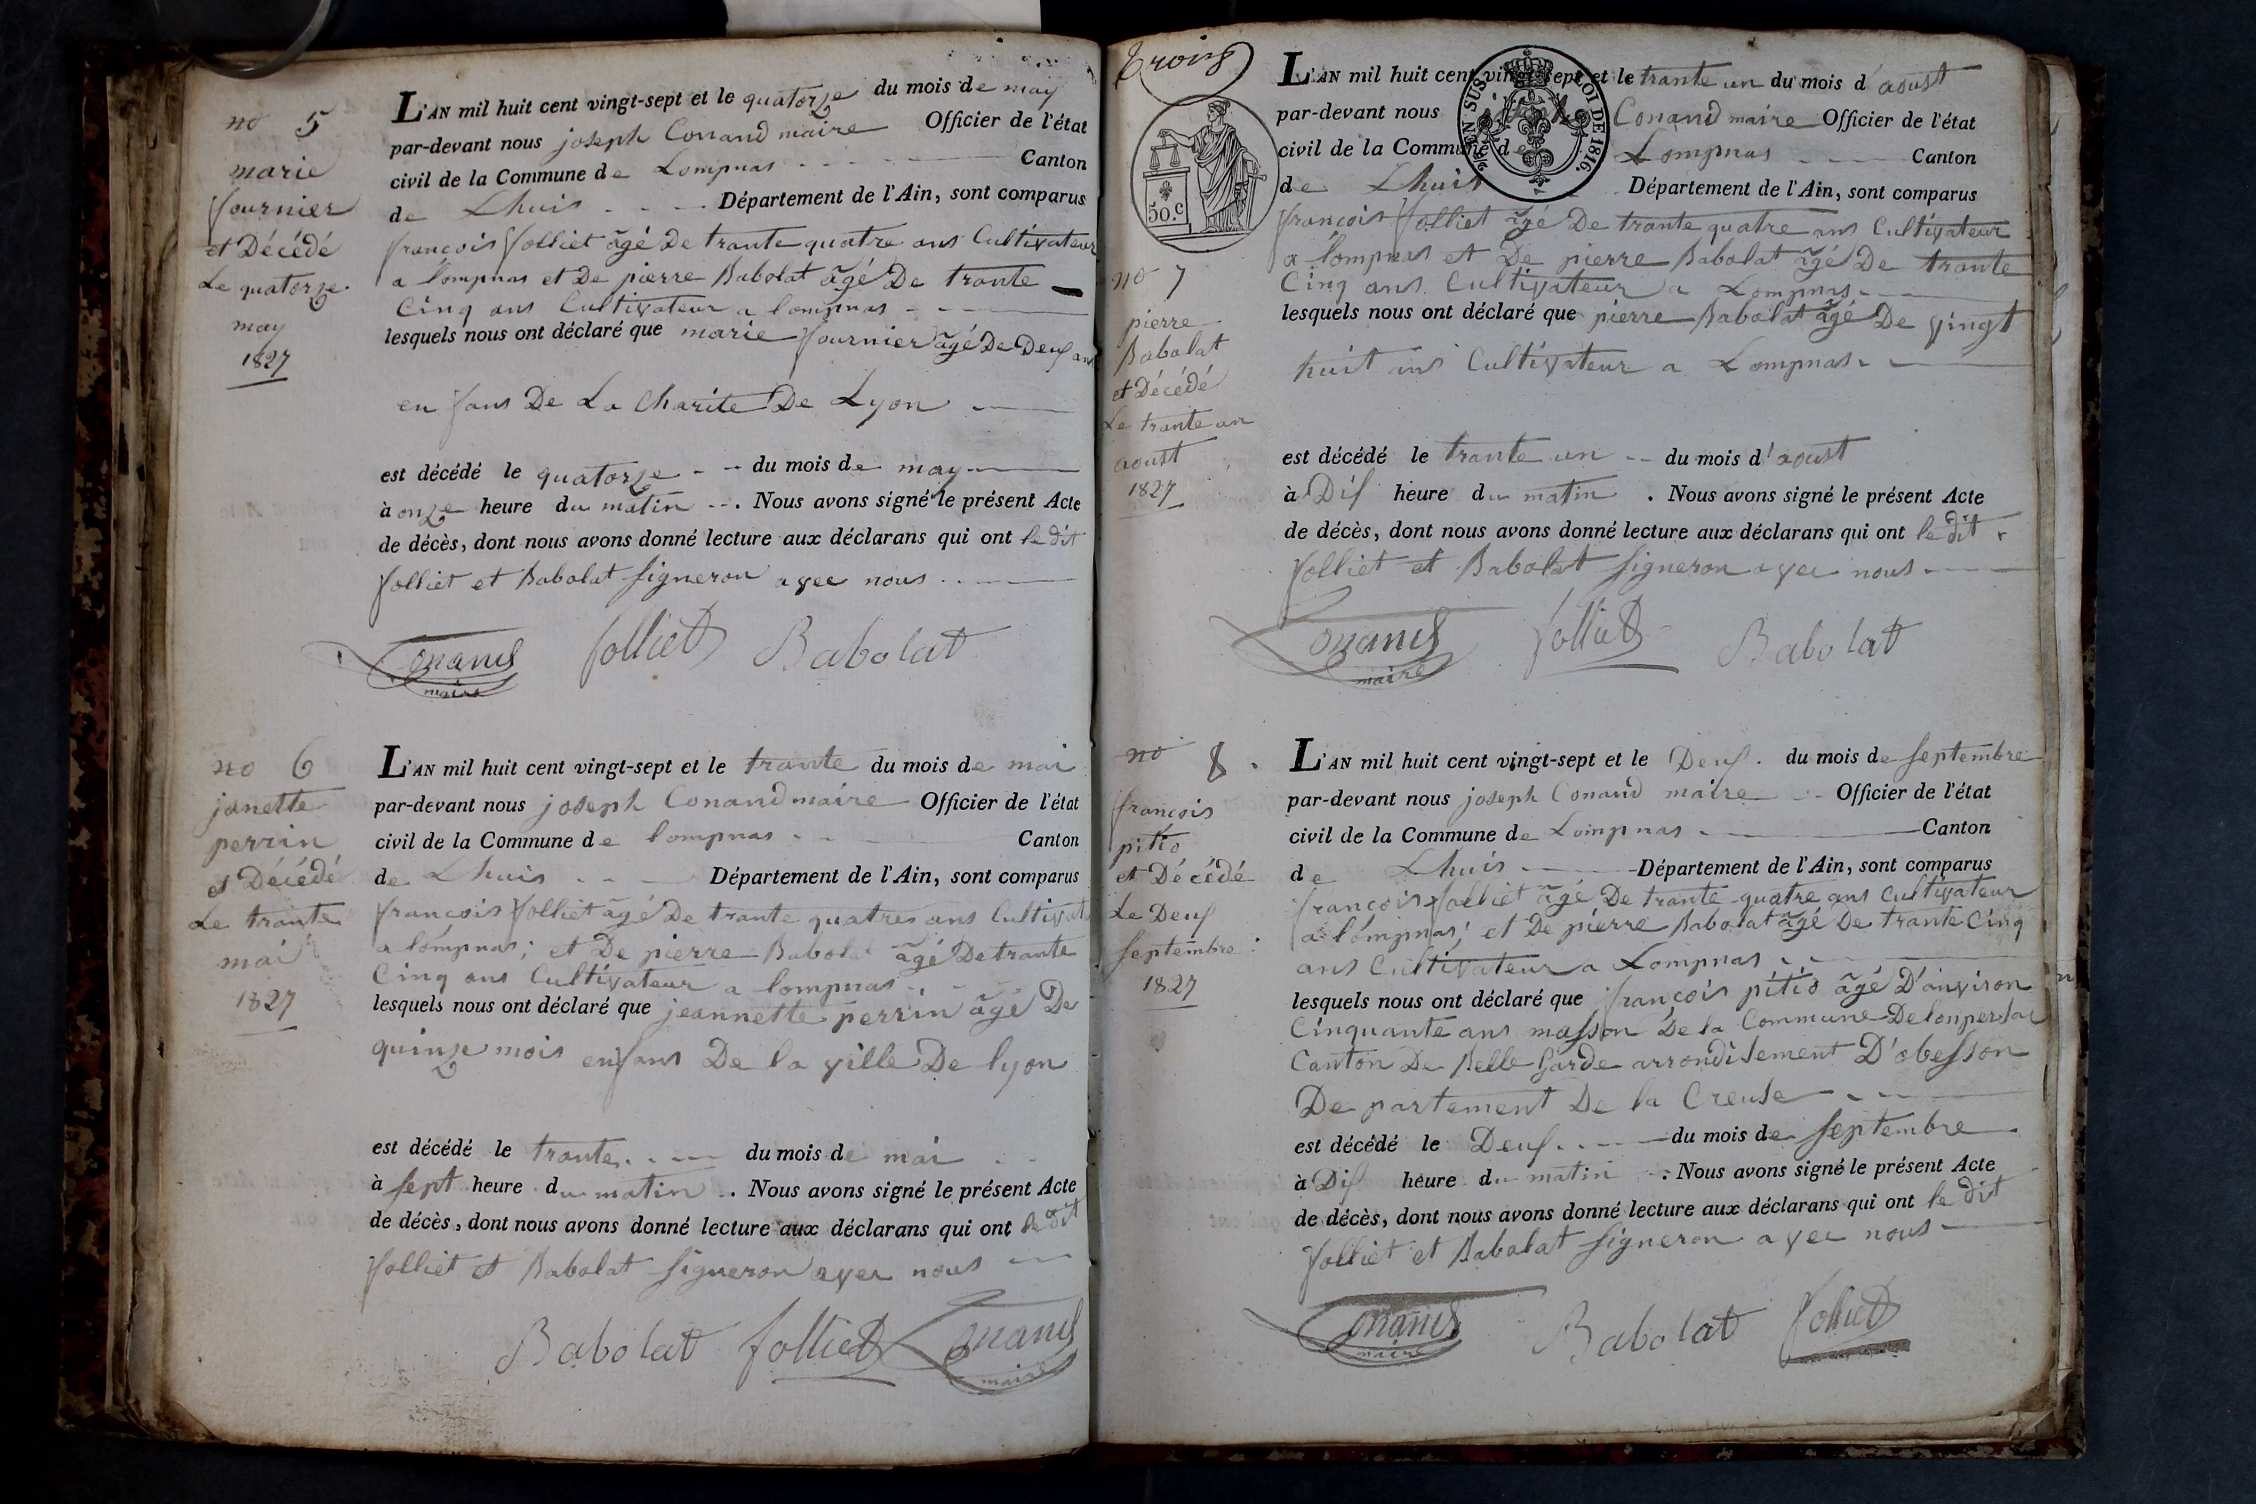 no 5
marie
fournier
et Décédé
Le quatorze
may
1827
L'AN mil huit cent vingt-sept et le quatorze du mois de may
par-devant nous joseph Conand maire Officier de l'état
civil de la Commune de Lompnas Canton
de Lhuis Département de l'Ain, sont comparus
françois folliet âgé De trante quatre ans Cultivateur
a lompnas et De pierre Babolat âgé De trante
Cinq ans Cultivateur a lompnas
lesquels nous ont déclaré que marie fournier âgé De Deuf ans
en fans De La Charite De Lyon
est décédé le quatorze du mois de may
à onze heure du matin . Nous avons signé le présent Acte
de décès, dont nous avons donné lecture aux déclarans qui ont le dit
folliet et Babolat signeron avec nous
Conand
maire
folliet
Babolat
no 6
janette
perrin
et Décédé
Le trante
mai
1827
L'AN mil huit cent vingt-sept et le trante du mois de mai
par-devant nous joseph Conand maire Officier de l'état
civil de la Commune de lompnas Canton
de Lhuis Département de l'Ain, sont comparus
françois folliet âgé De trante quatres ans Cultivat
a lompnas; et De pierre Babolat âgé De trante
Cinq ans Cultivateur a lompnas
lesquels nous ont déclaré que jeannette perrin âgé De
quinze mois enfans De la ville De lyon
est décédé le trante du mois de mai
à sept heure du matin . Nous avons signé le présent Acte
de décès, dont nous avons donné lecture aux déclarans qui ont le dit
folliet et Babolat signeron avec nous
Babolat folliet Conand
maire
trois
50.c
TIMB. EN SUS
LOI DE 1816.
no 7
pierre
Babolat
et Décédé
Le trante un
aoust
1827
L'AN mil huit cent vingt-sept et le trante un du mois d'aoust
par-devant nous Conand maire Officier de l'état
civil de la Commune de Lompnas Canton
de Lhuis Département de l'Ain, sont comparus
françois folliet âgé De trante quatre ans Cultivateur
a lompnas et De pierre Babolat âgé De trante
Cinq ans Cultivateur a Lompnas
lesquels nous ont déclaré que pierre Babolat âgé De vingt
huit ans Cultivateur a Lompnas
est décédé le trante un du mois d'aoust
à Dif heure du matin . Nous avons signé le présent Acte
de décès, dont nous avons donné lecture aux déclarans qui ont le dit
folliet et Babolat signeron avec nous
Conand
maire
folliet
Babolat
no 8
françois
pitio
et Décédé
Le Deuf
septembre
1827
L'AN mil huit cent vingt-sept et le Deuf du mois de septembre
par-devant nous joseph Conand maire Officier de l'état
civil de la Commune de Lompnas Canton
de Lhuis Département de l'Ain, sont comparus
françois folliet âgé De trante quatre ans Cultivateur
a lompnas; et De pierre Babolat âgé De trante Cinq
ans Cultivateur a Lompnas
lesquels nous ont déclaré que françois pitio âgé D'anviron
Cinquante ans masson De la Commune De
Canton De Belle Garde arrondisement D'obesson
De partement De la Creuse
est décédé le Deuf du mois de septembre
à Dif heure du matin . Nous avons signé le présent Acte
de décès, dont nous avons donné lecture aux déclarans qui ont le dit
folliet et Babolat signeron avec nous
Conand
maire
Babolat
folliet